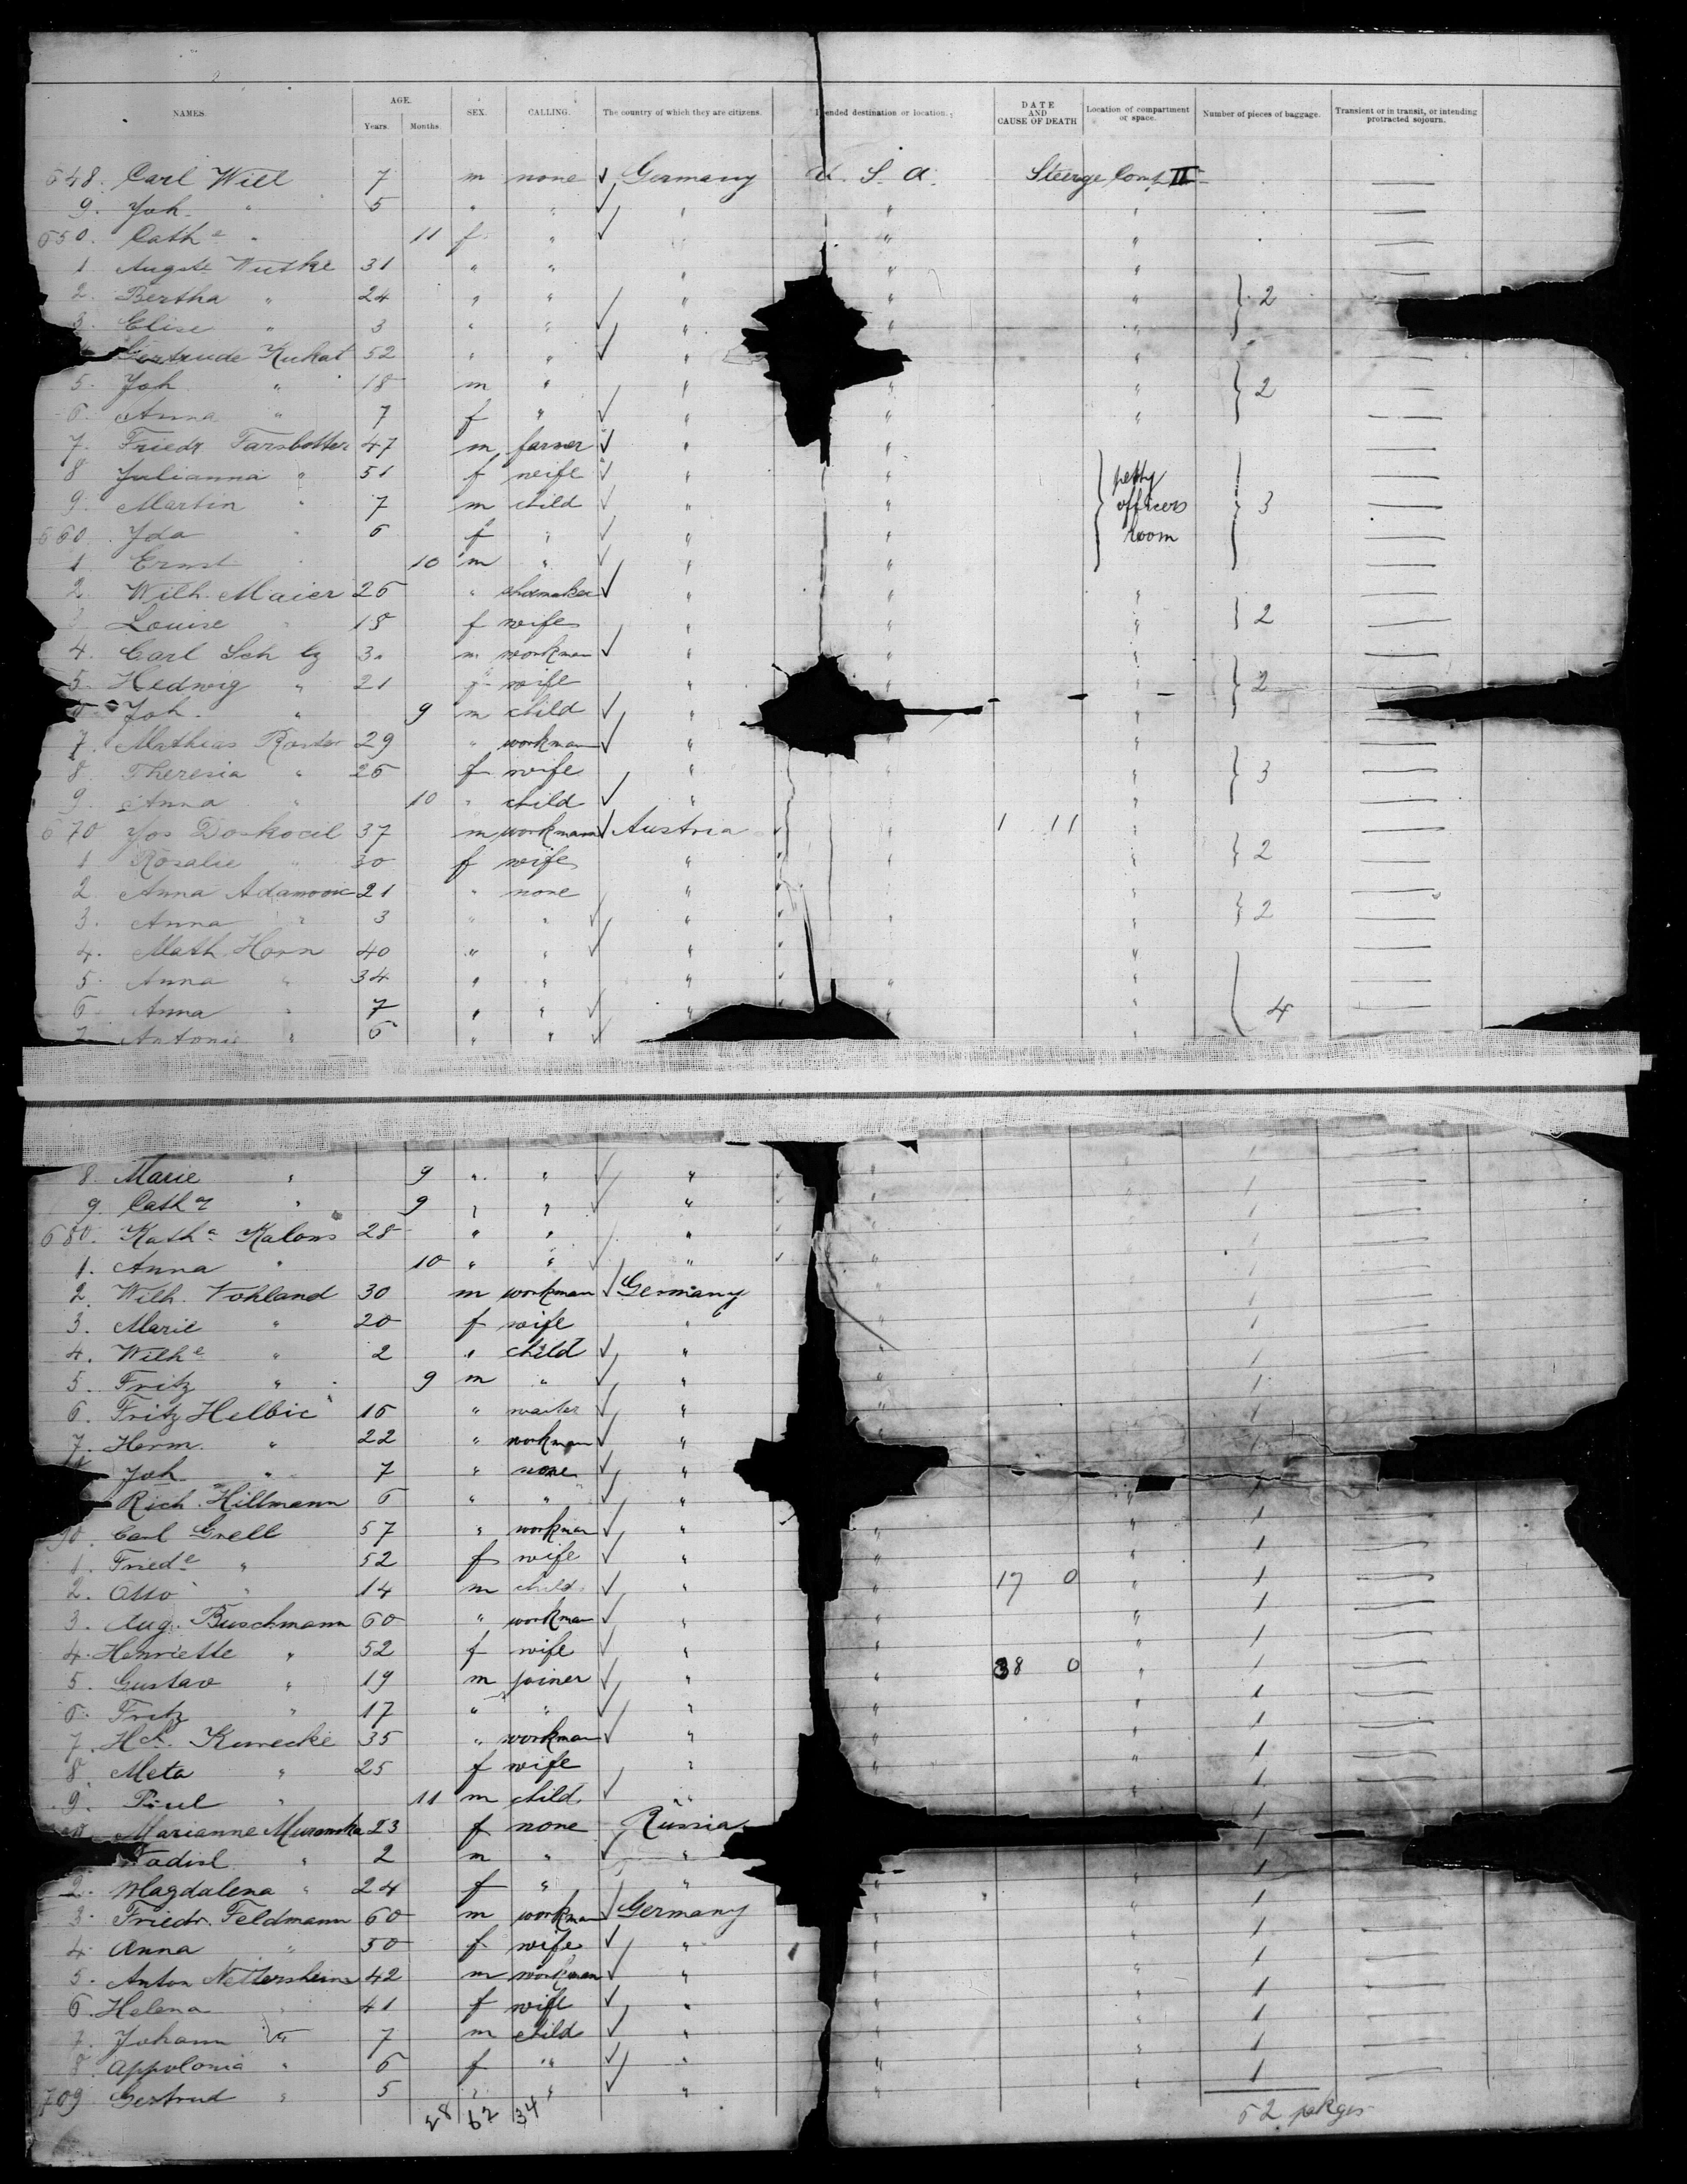 NAMES. AGE. Years. Months. SEX. CALLING. The country of which they are citizens. Intended destination or location. DATE AND CAUSE OF DEATH Location of compartment or space. Number of pieces of baggage. Transient or in transit, or intending protracted sojourn.
648. Carl Will 7 m none ✓ Germany U. S. A. Steerge Comp II —
9. Joh. " 5 " " ✓ " " " —
650. Cathe " 11 f " ✓ " " " —
1 Auguste Wutke 31 " " " " " —
2. Bertha " 24 " " ✓ " " " } 2 —
3. Elise " 3 " " ✓ " " "
Gertrude Kukat 52 " " ✓ " " " —
5. Joh " 18 m " " " " } 2 —
6. Anna " 7 f " ✓ " " " —
7. Friedr. Farsbotter 47 m farmer ✓ " " —
8 Julianna " 51 f weife ✓ " " petty —
9. Martin " 7 m child ✓ " " officers } 3 —
660 Ida " 6 f " ✓ " " room —
1 Ernst " 10 m " ✓ " " —
2. Wilh. Maier 26 " shomaker ✓ " " " —
Louise " 18 f wife " " " } 2 —
4. Carl Sch 3 m workman ✓ " " —
5. Hedwig " 21 f wife " " } 2 —
6 Joh. " 9 m child ✓ " " —
7. Mathias 29 " workman ✓ " " —
8. Theresia " 26 f wife " " } 3 —
9. Anna " 10 " child ✓ " " —
670 Jos Doskocil 37 m workman ✓ Austria " 1 11 " —
1 Rosalie " 30 f wife " " " } 2 —
2 Anna Adamovic 21 " none " " " —
3. Anna " 3 " " ✓ " " " } 2 —
4. Math. Horn 40 " " ✓ " " —
5. Anna " 34 " " " " " —
6 Anna " 7 " " ✓ " " } 4 —
7 Antonie " 6 " " ✓ " —
8. Marie " 9 " " ✓ " " 1 —
9. Catha " 9 " " ✓ " " 1 —
680. Katha Kalous 28 " " " " 1 —
1. Anna " 10 " " ✓ " " 1 —
2. Wilh. Vohland 30 m workman ✓ Germany " 1 —
3. Marie " 20 f wife " " 1 —
4. Wilhe " 2 " child ✓ " " 1 —
5. Fritz " 9 m " ✓ " " 1 —
6. Fritz Helbic 16 " ✓ " " 1 —
7. Herm. " 22 " workman ✓ " " 1 —
Joh " 7 " none ✓ " —
Rich. Hillmann 6 " " ✓ " " 1 —
90. Carl Grell 57 " workman ✓ " " " 1 —
1. Friede " 52 f wife ✓ " " " 1 —
2. Otto " 14 m child ✓ " " 17 0 " 1 —
3. Aug. Buschmann 60 " workman ✓ " " " 1 —
4. Henriette " 52 f wife ✓ " " " 1 —
5. Gustav " 19 m joiner ✓ " " 38 0 " 1 —
6. Fritz " 17 " " ✓ " " " 1 —
7. Hch. Kunecke 35 " workman ✓ " " " 1 —
8. Meta " 25 f wife " " " 1 —
9. Paul " 11 m child ✓ " " 1 —
Marianne Muranska 23 f none Russia 1
2 m " ✓ " 1
2. Magdalena " 24 f " " " 1 —
3. Friedr. Feldmann 60 m workman ✓ Germany " " 1 —
4. Anna " 50 f wife ✓ " " " 1 —
5. Anton Nettersheim 42 m workman ✓ " " " 1 —
6. Helena " 41 f wife ✓ " " " 1 —
7. Johann " 7 m child ✓ " " " 1 —
8 Appolonia " 6 f " ✓ " " " 1 —
709 Gertrud " 5 " " ✓ " " " —
62 34
62 pkges